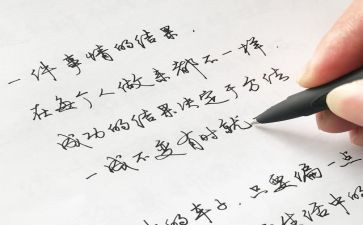 一件事情的结果.
在每个人做来都不一样.
成功的结果决定于方法
一成不变有时就
的车子.只要偏一点
生活中的